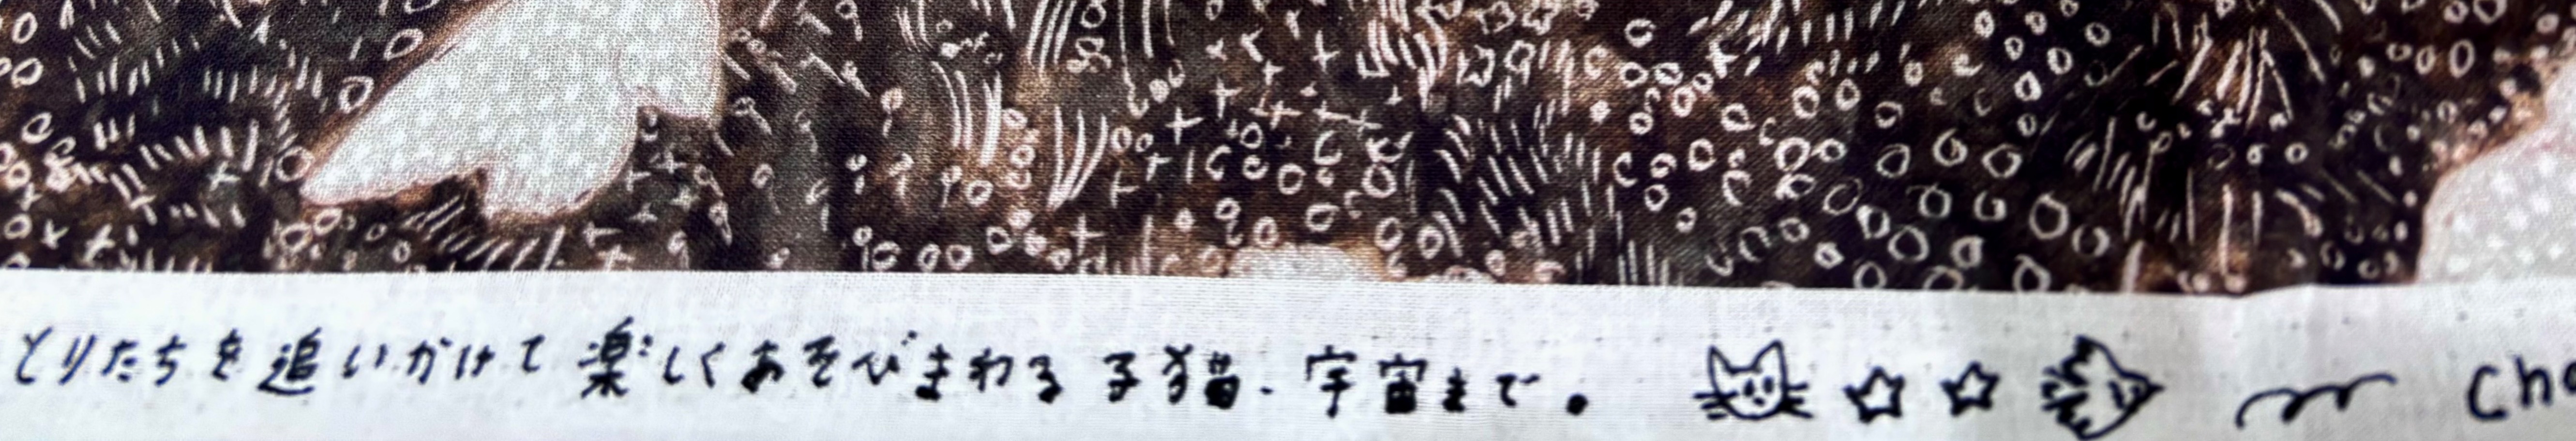 とりたちを追いかけて楽しくあそびまわる子猫、宇宙まで。